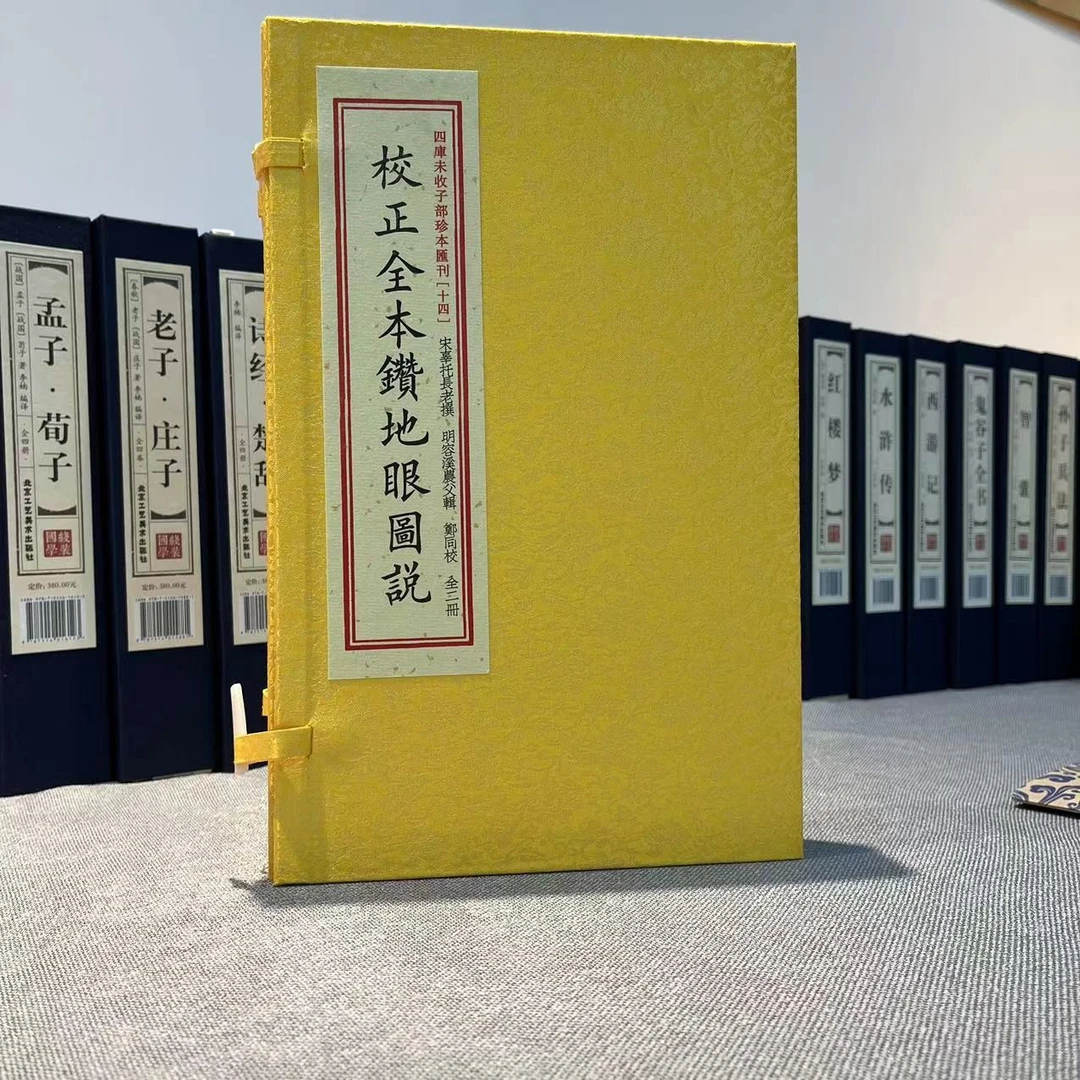 四庫未收子部珍本匯刊［十四］
宋辜托長老撰 明容溪農父輯 鄭同校 全三冊
校正全本鑽地眼圖説
［战国］孟子［战国］荀子 著 李楠 编译
孟子·荀子
·全四册·
北京工艺美术出版社
國學
綫装
定价：380.00元
［春秋］老子［战国］庄子 著 李楠 编译
老子·庄子
·全四卷·
北京工艺美术出版社
國學
綫装
定价：380.00元
李楠 编译
诗经·楚辞
红楼梦
水浒传
西游记
鬼谷子全书
智囊
孙子兵法